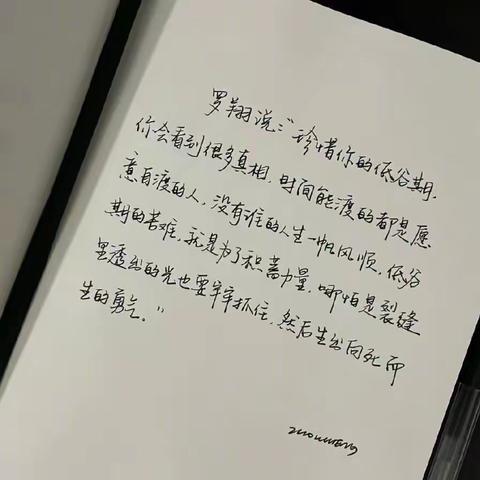 罗翔说:"珍惜你的低谷期,
你会看到很多真相,时间能渡的都是愿
意自渡的人,没有谁的人生一帆风顺,低谷
期的苦难,就是为了积蓄力量,哪怕是裂缝
里透出的光也要牢牢抓住,然后生出向死而
生的勇气。"